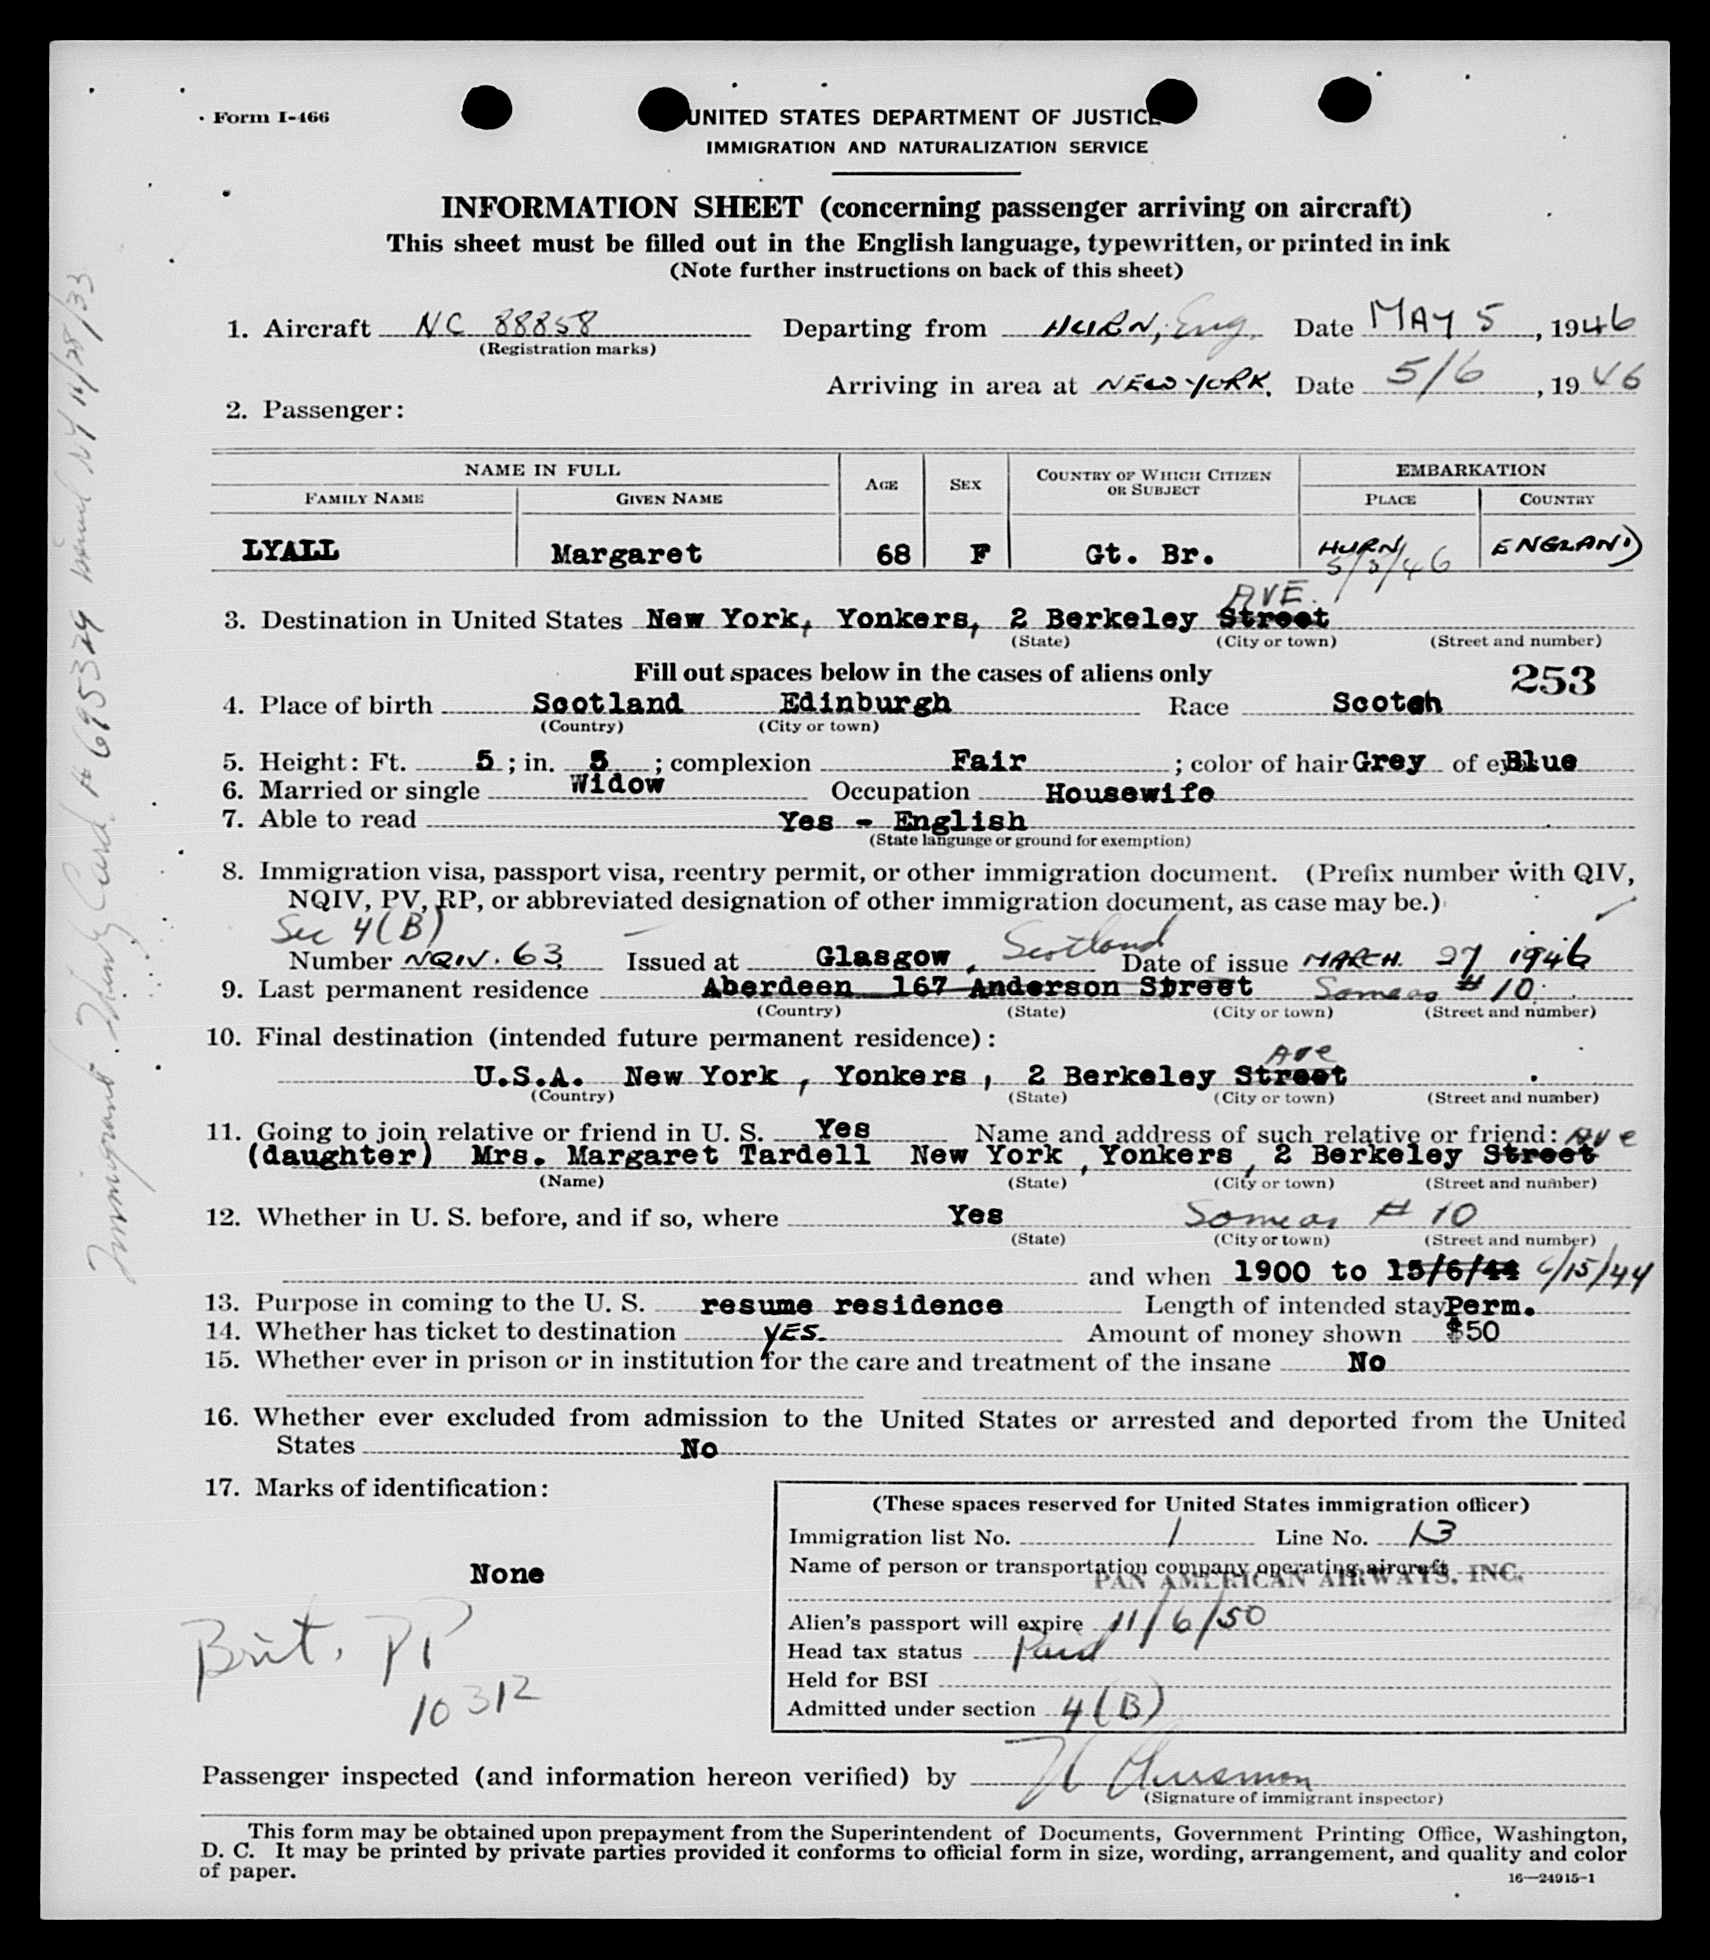 Form I-466
UNITED STATES DEPARTMENT OF JUSTICE
IMMIGRATION AND NATURALIZATION SERVICE
INFORMATION SHEET (concerning passenger arriving on aircraft)
This sheet must be filled out in the English language, typewritten, or printed in ink
(Note further instructions on back of this sheet)
1. Aircraft NC 88858 Departing from HURN, Eng. Date MAY 5, 1946
(Registration marks)
Arriving in area at NEW YORK. Date 5/6, 1946
2. Passenger:
NAME IN FULL AGE SEX COUNTRY OF WHICH CITIZEN OR SUBJECT EMBARKATION
FAMILY NAME GIVEN NAME PLACE COUNTRY
LYALL Margaret 68 F Gt. Br. HURN ENGLAND
5/5/46
AVE.
3. Destination in United States New York, Yonkers, 2 Berkeley Street
(State) (City or town) (Street and number)
Fill out spaces below in the cases of aliens only 253
4. Place of birth Scotland Edinburgh Race Scotch
(Country) (City or town)
5. Height: Ft. 5; in. 5; complexion Fair; color of hair Grey of eyes Blue
6. Married or single Widow Occupation Housewife
7. Able to read Yes - English
(State language or ground for exemption)
8. Immigration visa, passport visa, reentry permit, or other immigration document. (Prefix number with QIV,
NQIV, PV, RP, or abbreviated designation of other immigration document, as case may be.)
Sec 4(B)
Number NQIV. 63 Issued at Glasgow, Scotland Date of issue MARCH. 27 1946
9. Last permanent residence Aberdeen 167 Anderson Street Same as # 10.
(Country) (State) (City or town) (Street and number)
10. Final destination (intended future permanent residence):
Ave
U.S.A. New York, Yonkers, 2 Berkeley Street
(Country) (State) (City or town) (Street and number)
11. Going to join relative or friend in U. S. Yes Name and address of such relative or friend: Ave
(daughter) Mrs. Margaret Tardell New York, Yonkers, 2 Berkeley Street
(Name) (State) (City or town) (Street and number)
12. Whether in U. S. before, and if so, where Yes Same as # 10
(State) (City or town) (Street and number)
and when 1900 to 15/6/44 6/15/44
13. Purpose in coming to the U. S. resume residence Length of intended stay Perm.
14. Whether has ticket to destination YES. Amount of money shown $50
15. Whether ever in prison or in institution for the care and treatment of the insane No
16. Whether ever excluded from admission to the United States or arrested and deported from the United
States No
17. Marks of identification:
None
Brit. PP
10312
(These spaces reserved for United States immigration officer)
Immigration list No. 1 Line No. 13
Name of person or transportation company operating aircraft
PAN AMERICAN AIRWAYS, INC.
Alien's passport will expire 11/6/50
Head tax status Paid
Held for BSI
Admitted under section 4(B)
Passenger inspected (and information hereon verified) by
(Signature of immigrant inspector)
This form may be obtained upon prepayment from the Superintendent of Documents, Government Printing Office, Washington,
D. C. It may be printed by private parties provided it conforms to official form in size, wording, arrangement, and quality and color
of paper.
16—24915-1
Immigrant Identy Card # 695374 issued NY 10/28/33